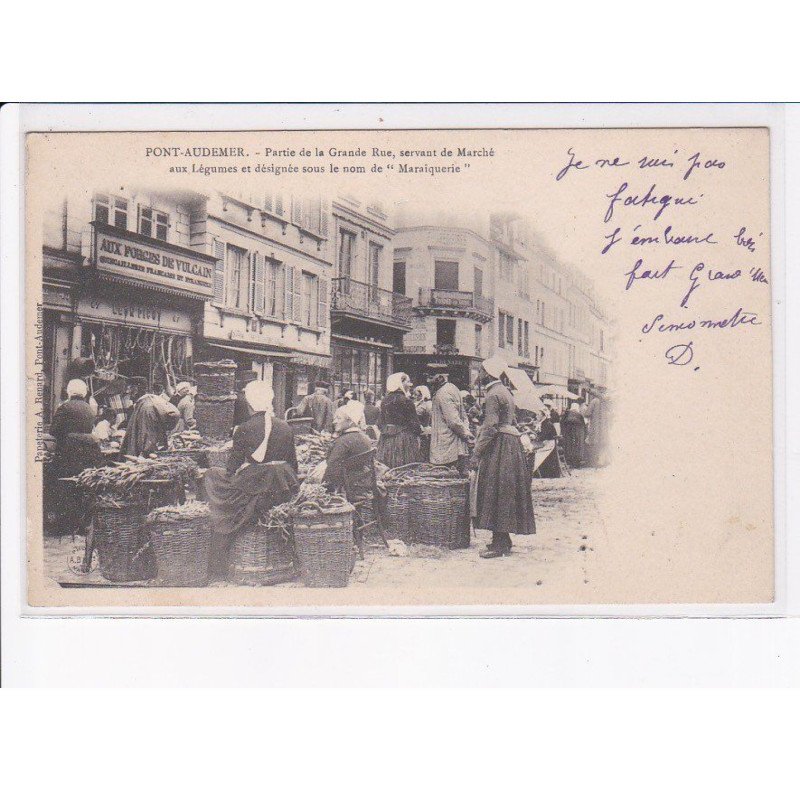 PONT-AUDEMER. - Partie de la Grande Rue, servant de Marché
aux Légumes et désignée sous le nom de " Maraîquerie "
Je ne suis pas
fatigué
j'embrasse bien
fort Grand'
Simonnette
D.
AUX FORGES DE VULCAIN
LEVR PICOT
Papeterie A. Renard, Pont-Audemer